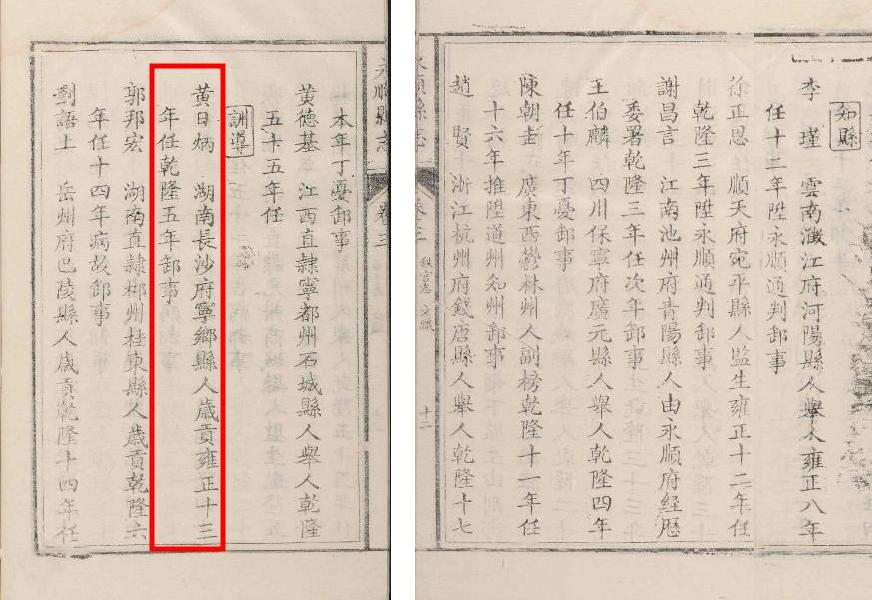 知縣
李瑾　雲南澂江府河陽縣人舉人雍正八年
任十二年陞永順通判卸事
徐正恩　順天府宛平縣人監生雍正十二年任
乾隆三年陞永順通判卸事
謝昌言　江南池州府青陽縣人由永順府經歷
委署乾隆三年任次年卸事
王伯麟　四川保寧府廣元縣人舉人乾隆四年
任十年丁憂卸事
陳朝　廣東西鬱林州人副榜乾隆十一年任
十六年推陞道州知州卸事
趙賢　浙江杭州府錢唐縣人舉人乾隆十七
永順縣志　卷三　秩官志　文職　十二
永順縣志　卷三
本年丁憂卸事
黃德基　江西直隸寧都州石城縣人舉人乾隆
五十五年任
訓導
黃日炳　湖南長沙府寧鄉縣人歲貢雍正十三
年任乾隆五年卸事
郭邦宏　湖南直隸郴州桂東縣人歲貢乾隆六
年任十四年病故卸事
劉語上　岳州府巴陵縣人歲貢乾隆十四年任